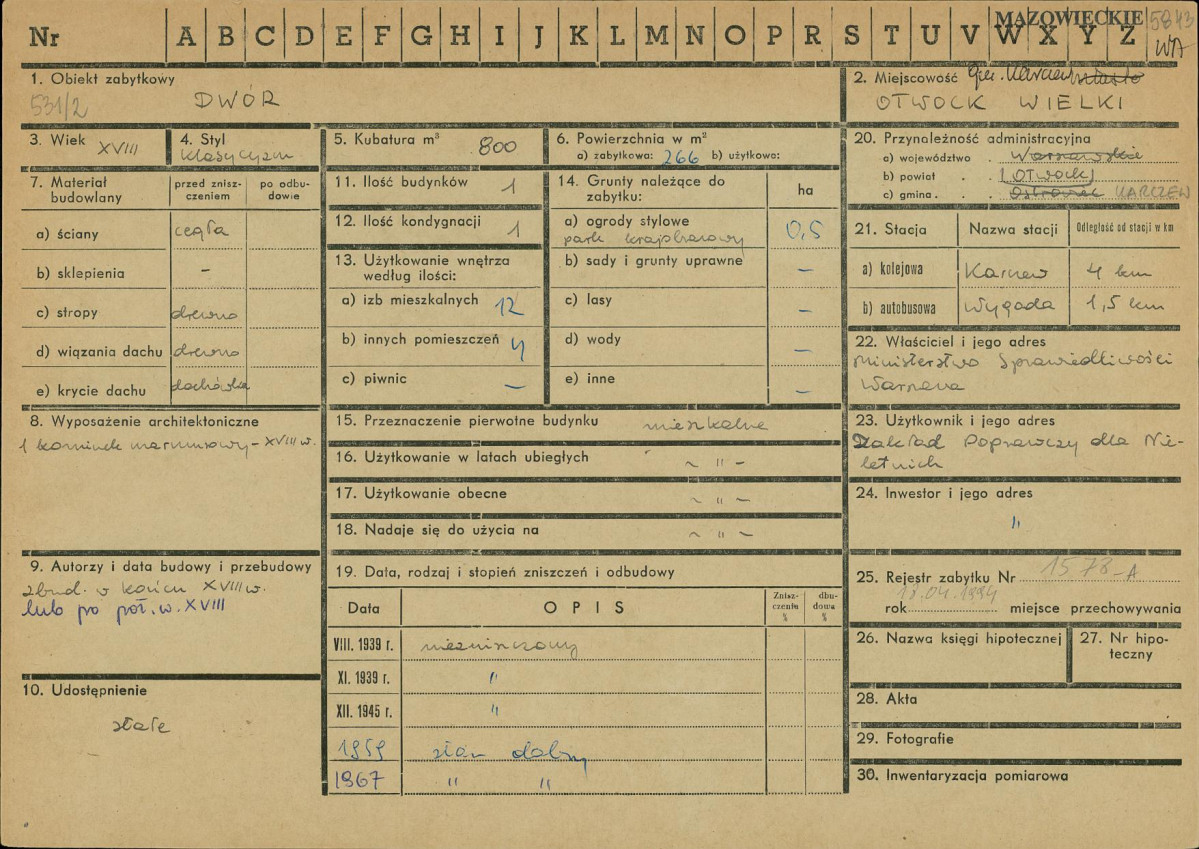 Nr A B C D E F G H I J K L M N O P R S T U V W X Y Z
MAZOWIECKIE
5843
WA
1. Obiekt zabytkowy
531/2
DWÓR
2. Miejscowość gm. Karczew
OTWOCK WIELKI
3. Wiek XVIII
4. Styl
klasycyzm
5. Kubatura m³ 800
6. Powierzchnia w m²
a) zabytkowa: 266 b) użytkowa:
7. Materiał budowlany
przed zniszczeniem
po odbudowie
a) ściany cegła
b) sklepienia –
c) stropy drewno
d) wiązania dachu drewno
e) krycie dachu dachówka
8. Wyposażenie architektoniczne
1 kominek marmurowy – XVIII w.
9. Autorzy i data budowy i przebudowy
zbud. w końcu XVIII w.
lub po poł. w. XVIII
10. Udostępnienie
stałe
11. Ilość budynków 1
12. Ilość kondygnacji 1
13. Użytkowanie wnętrza
według ilości:
a) izb mieszkalnych 12
b) innych pomieszczeń 4
c) piwnic –
14. Grunty należące do
zabytku:
ha
a) ogrody stylowe
park krajobrazowy 0,5
b) sady i grunty uprawne –
c) lasy –
d) wody –
e) inne –
15. Przeznaczenie pierwotne budynku mieszkalne
16. Użytkowanie w latach ubiegłych ~ " –
17. Użytkowanie obecne ~ " ~
18. Nadaje się do użycia na ~ " –
19. Data, rodzaj i stopień zniszczeń i odbudowy
Data OPIS Zniszczenia % dbudowa %
VIII. 1939 r. niezniszczony
XI. 1939 r. "
XII. 1945 r. "
1959 stan dobry
1967 " "
20. Przynależność administracyjna
a) województwo . Warszawskie
b) powiat . . (OTWOCK)
c) gmina . . Ostrowiec KARCZEW
21. Stacja
Nazwa stacji
Odległość od stacji w km
a) kolejowa Karczew 4 km
b) autobusowa Wygoda 1,5 km
22. Właściciel i jego adres
Ministerstwo Sprawiedliwości
Warszawa
23. Użytkownik i jego adres
Zakład Poprawczy dla Nie-
letnich
24. Inwestor i jego adres
"
25. Rejestr zabytku Nr 1578-A
rok 18.04.1994 miejsce przechowywania
26. Nazwa księgi hipotecznej
27. Nr hipo-
teczny
28. Akta
29. Fotografie
30. Inwentaryzacja pomiarowa